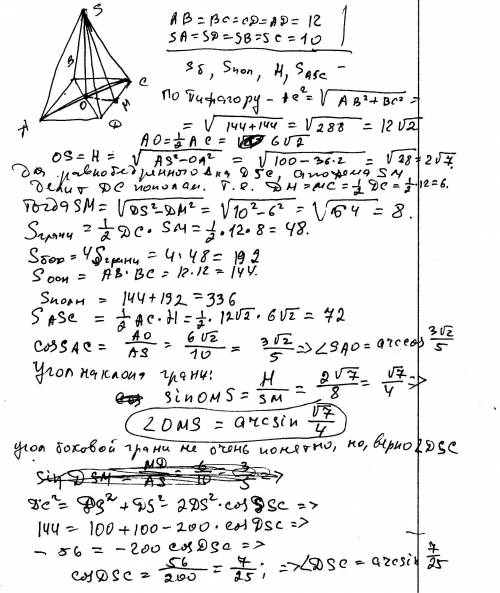 S
B
C
A
O
M
D
AB = BC = CD = AD = 12
SA = SD = SB = SC = 10
Sб, Sпол, H, SASC -
По Пифагору - AC² = √AB² + BC² =
= √144 + 144 = √288 = 12√2
AO = 1/2 AC = 6√2
OS = H = √AS² - OA² = √100 - 36·2 = √28 = 2√7.
Для равнобедренного DSC, апофема SM
делит DC пополам. Т.е. DM = MC = 1/2 DC = 1/2·12 = 6.
Тогда SM = √DS² - DM² = √10² - 6² = √64 = 8.
Sграни = 1/2 DC · SM = 1/2 · 12 · 8 = 48.
Sбок = 4Sграни = 4 · 48 = 192
Sосн = AB · BC = 12 · 12 = 144.
Sполн = 144 + 192 = 336
SASC = 1/2 AC · H = 1/2 · 12√2 · 6√2 = 72
cos SAC = AO/AS = 6√2/10 = 3√2/5 => ∠SAO = arccos 3√2/5
Угол наклона грани:
sin OMS = H/SM = 2√7/8 = √7/4 =>
∠OMS = arcsin √7/4
угол боковой грани не очень понятно, но, верно ∠DSC
sin DSM = MD/AS = 6/10 = 3/5 =>
DC² = DS² + DS² - 2DS² · cos DSC =>
144 = 100 + 100 - 200 · cos DSC =>
- 56 = - 200 cos DSC =>
cos DSC = 56/200 = 7/25; => ∠DSC = arcsin 7/25